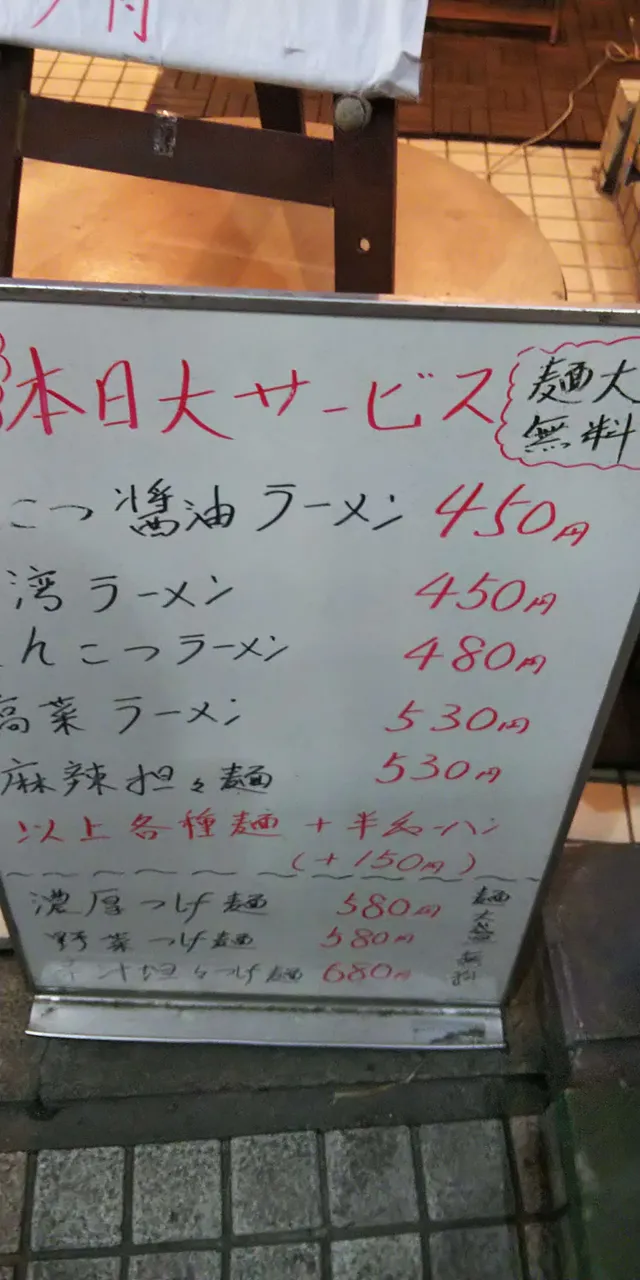 付
本日大サービス
麺大
無料
こつ醤油ラーメン 450円
湾ラーメン 450円
んこつラーメン 480円
高菜ラーメン 530円
麻辣担々麺 530円
以上各種麺+半チャーハン
(+150円)
濃厚つけ麺 580円
野菜つけ麺 580円
担々つけ麺 680円
麺大盛無料